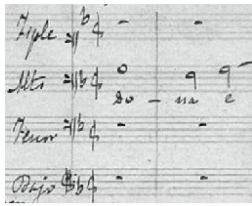 Tiple
Alto
Do - na e
Tenor
Bajo